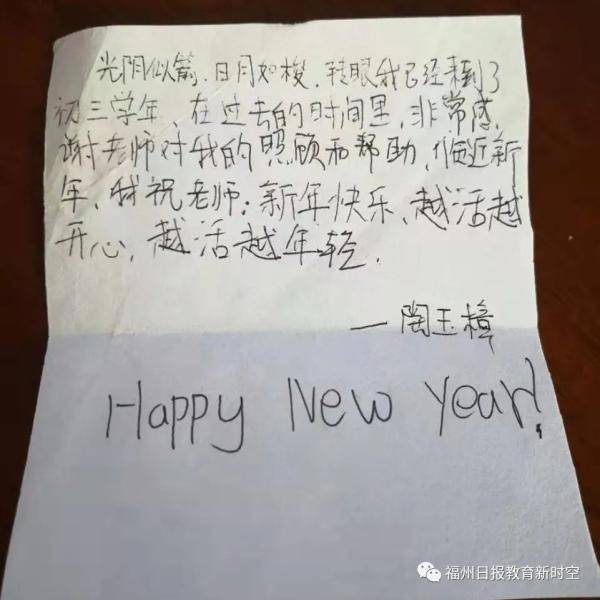 光阴似箭,日月如梭,转眼我已经来到了
初三学年、在过去的时间里,非常感
谢老师对我的照顾和帮助,临近新
年、我祝老师:新年快乐、越活越
开心,越活越年轻.
—陶玉樟
Happy New Year!
福州日报教育新时空